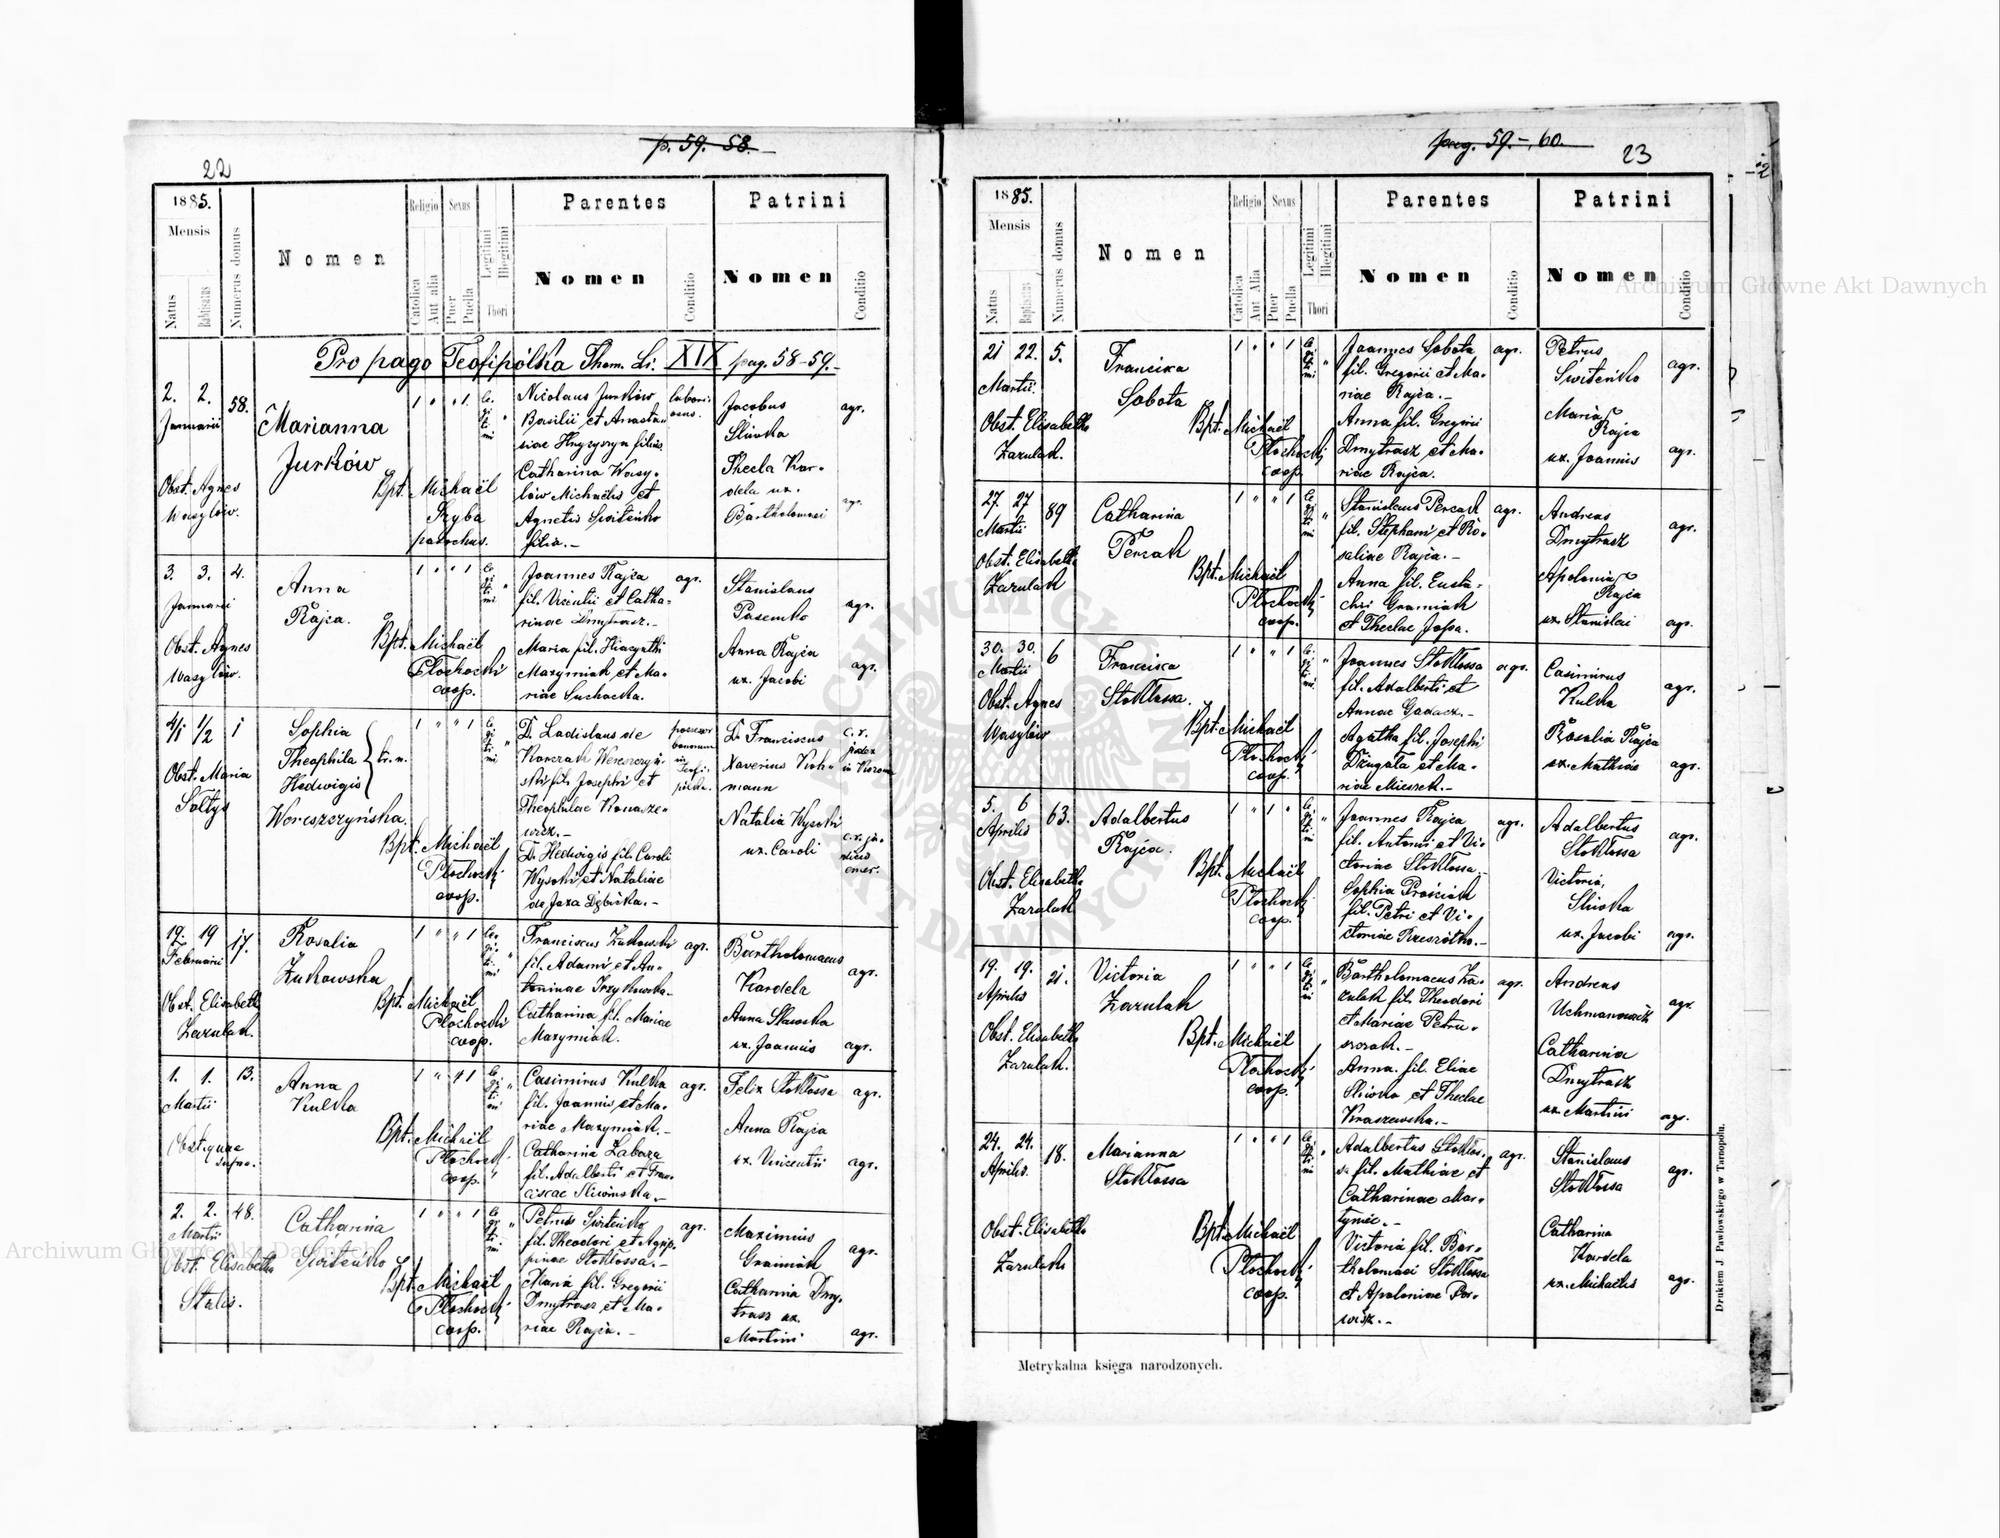 p. 59. 58.
22
1885.
Mensis
Natus
Babtisatus
Numerus domus
Nomen
Religio
Catholica
Aut alia
Sexus
Puer
Puella
Legitimi
Illegitimi
Thori
Parentes
Nomen
Conditio
Patrini
Nomen
Conditio
Pro pago Teofipólka Thom. Li. XIX pag. 58-59.-
2. 2. 58.
Januarii
Obst. Agnes
Wasylów.
Marianna
Jurków
Bpt. Michaël
Gryba
parochus.
1 " " 1 le.
gi
ti
mi "
Nicolaus Jurków
Basilii et Anasta-
siae Hryzyszyn filius.
Catharina Wasy-
lów Michaëlis et
Agnetis Switeńko
filia.-
Jacobus
Śliwka
Thecla Kar-
dela ux.
Bartholomaei
agr.
agr.
3. 3. 4.
Januarii
Obst. Agnes
Wasylów.
Anna
Rajca.
Bpt. Michaël
Płochocki
coop.
1 " " 1 le
gi
ti
mi "
Joannes Rajca
fil. Vicentii et Catha-
rinae Dmytrasz.-
Maria fil. Hiacynthi
Maxymiak et Ma-
riae Suchocka.
agr.
Stanislaus
Pasemko
Anna Rajca
ux. Jacobi
agr.
agr.
4/1 1/2 1
Obst. Maria
Sołtys
Sophia
Theophila
Hedwigis
tr. n.
Wereszczyńska.
Bpt. Michaël
Płochocki
coop.
1 " " 1 le
gi
ti
mi "
D. Ladislaus de
Korczak Wereszczyń-
ski fil. Josephi et
Theophilae Konasze-
wicz.-
D. Hedwigis fil. Caroli
Wysocki et Nataliae
de Jaxa Dębicka.-
possessor
bonorum
in
Teofi-
pólka.
D. Franciscus
Xaverius
mann
Natalia Wysocki
ux. Caroli
c.r.
judex
c.r. ju-
dicis
emer.
19. 19 17.
Februarii
Obst. Elisabetha
Zazulak.
Rosalia
Żukowska
Bpt. Michaël
Płochocki
coop.
1 " " 1 le.
gi
ti.
mi "
Franciscus Żukowski
fil. Adami et An-
toninae Trzykowska-
Catharina fil. Mariae
Maxymiak.
agr.
Bartholomaeus
Kardela
Anna Sławska
ux. Joannis
agr.
agr.
1. 1. 13.
Martii
Obst. quae
supra.
Anna
Kulka
Bpt. Michaël
Płochocki
coop.
1 " " 1 le
gi
ti
mi "
Casimirus Kulka
fil. Joannis et Ma-
riae Maxymiak.-
Catharina Łabaza
fil. Adalberti et Fran-
ciscae Śliwińska.-
agr.
Felix Stokłossa
Anna Rajca
ux. Vincentii
agr.
agr.
2. 2. 48.
Martii
Obst. Elisabetha
Catharina
Switeńko
Bpt. Michaël
Płochocki
coop.
1 " " 1 le
gi
ti
mi. "
Petrus Switeńko
fil. Theodori et Agrip-
pinae Stokłossa.-
Maria fil. Gregorii
Dmytrasz et Ma-
riae Rajca.-
agr.
Maximus
Graniak
Catharina Dmy-
trasz ux.
Martini
agr.
agr.
pag. 59.-, 60.
23
1885.
Mensis
Natus
Baptisatus
Numerus domus
Nomen
Religio
Catholica
Aut Alia
Sexus
Puer
Puella
Legitimi
Illegitimi
Thori
Parentes
Nomen
Conditio
Patrini
Nomen
Conditio
21 22. 5.
Martii
Obst. Elisabetha
Zazulak.
Francisca
Sobota
Bpt. Michaël
Płochocki
coop.
1 " " 1 le
gi
ti
mi "
Joannes Sobota
fil. Gregorii et Ma-
riae Rajca.-
Anna fil. Gregorii
Dmytrasz et Ma-
riae Rajca.
agr.
Petrus
Switeńko
Maria
Rajca
ux. Joannis
agr.
agr.
27. 27 89
Martii
Obst. Elisabetha
Zazulak
Catharina
Percak
Bpt. Michaël
Płochocki
coop.
1 " " 1 le
gi
ti
mi "
Stanislaus Percak
fil. Stephani et Ro-
saliae Rajca.-
Anna fil. Eusta-
chii Graniak
et Theclae
agr.
Andreas
Dmytrasz
Apolonia
Rajca
ux. Stanislai
agr.
agr.
30. 30. 6
Martii
Obst. Agnes
Wasylów
Francisca
Stokłossa.
Bpt. Michaël
Płochocki
coop.
1 " " 1 le
gi
ti
mi. "
Joannes Stokłossa
fil. Adalberti et
Annae Gadacz.-
Agatha fil. Josephi
Dżugała et Ma-
riae Mieszek.-
agr.
Casimirus
Kulka
Rosalia Rajca
ux. Mathiae
agr.
agr.
5. 6 63.
Aprilis
Obst. Elisabetha
Zazulak
Adalbertus
Rajca.
Bpt. Michaël
Płochocki
coop.
1 " 1 " le
gi
ti
mi "
Joannes Rajca
fil. Antonii et Vi-
ctoriae Stokłossa.-
Sophia Prościak
fil. Petri et Vi-
ctoriae Rzeszótko.-
agr.
Adalbertus
Stokłossa
Victoria
Śliwka
ux. Jacobi
agr.
agr.
19. 19. 21.
Aprilis
Obst. Elisabetha
Zazulak.
Victoria
Zazulak
Bpt. Michaël
Płochocki
coop.
1 " " 1 le
gi
ti
mi "
Bartholomaeus Za-
zulak fil. Theodori
et Mariae Petru-
szczak.-
Anna fil. Eliae
Śliwka et Theclae
Kraszewska.-
agr.
Andreas
Uchmanowicz
Catharina
Dmytrasz
ux. Martini
agr.
agr.
24. 24. 18.
Aprilis
Obst. Elisabetha
Zazulak
Marianna
Stokłossa
Bpt. Michaël
Płochocki
coop.
1 " " 1 le
gi
ti
mi "
Adalbertus Stokłos-
sa fil. Mathiae et
Catharinae Mar-
tyniec.-
Victoria fil. Bar-
tholomaei Stokłossa
et Apoloniae Por-
wisz.-
agr.
Stanislaus
Stokłossa
Catharina
Kardela
ux. Michaëlis
agr.
agr.
Metrykalna księga narodzonych.
Drukiem J. Pawłowskiego w Tarnopolu.
Archiwum Główne Akt Dawnych
Archiwum Główne Akt Dawnych
ARCHIWUM GŁÓWNE AKT DAWNYCH